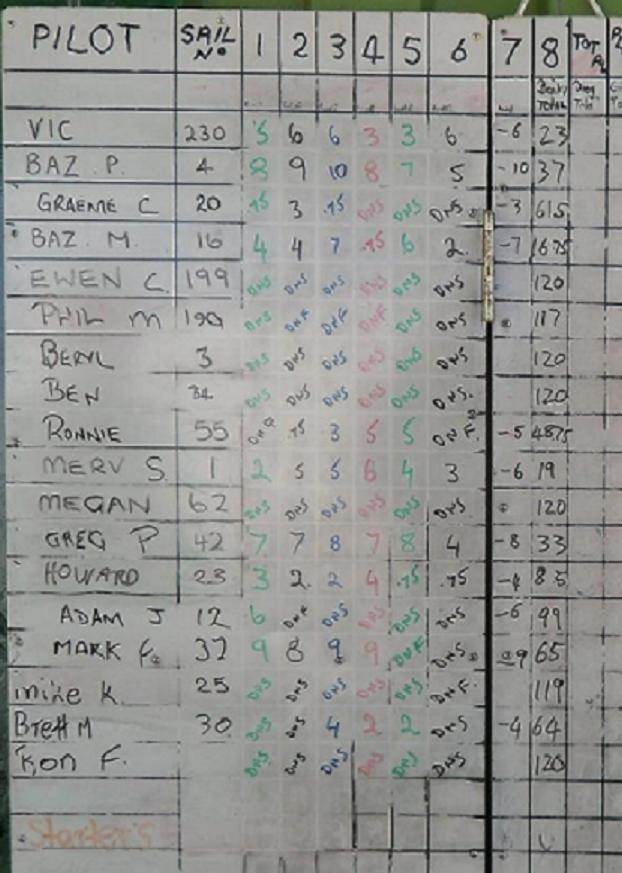 PILOT SAIL Nº 1 2 3 4 5 6 7 8 TOT
VIC 230 5 6 6 3 3 6 -6 23
BAZ. P. 4 8 9 10 8 7 5 -10 37
GRAEME C 20 .75 3 .75 DNS DNS DNS -3 615
BAZ. M. 16 4 4 7 .75 6 2 -7 1675
EWEN C. 199 DNS DNS DNS DNS DNS DNS 120
PHIL M 190 DNS DNF DNF DNF DNS DNS 117
BERYL 3 DNS DNS DNS DNS DNS DNS 120
BEN 34 DNS DNS DNS DNS DNS DNS. 120
RONNIE 55 .75 3 5 5 DNF. -5 4875
MERV S. 1 2 5 5 6 4 3 -6 19
MEGAN 62 DNS DNS DNS DNS DNS DNS 120
GREG P 42 7 7 8 7 8 4 -8 33
HOWARD 23 3 2. 2 4 .75 .75 -4 85
ADAM J 12 6 DNF DNS DNS DNS DNS -6 99
MARK F. 37 9 8 9 9 DNF DNS -9 65
mike K. 25 DNS DNS DNS DNS DNS DNF. 119
Brett M 30 DNS DNS 4 2 2 DNS -4 64
Ron F. DNS DNS DNS DNS DNS DNS 120
Starters